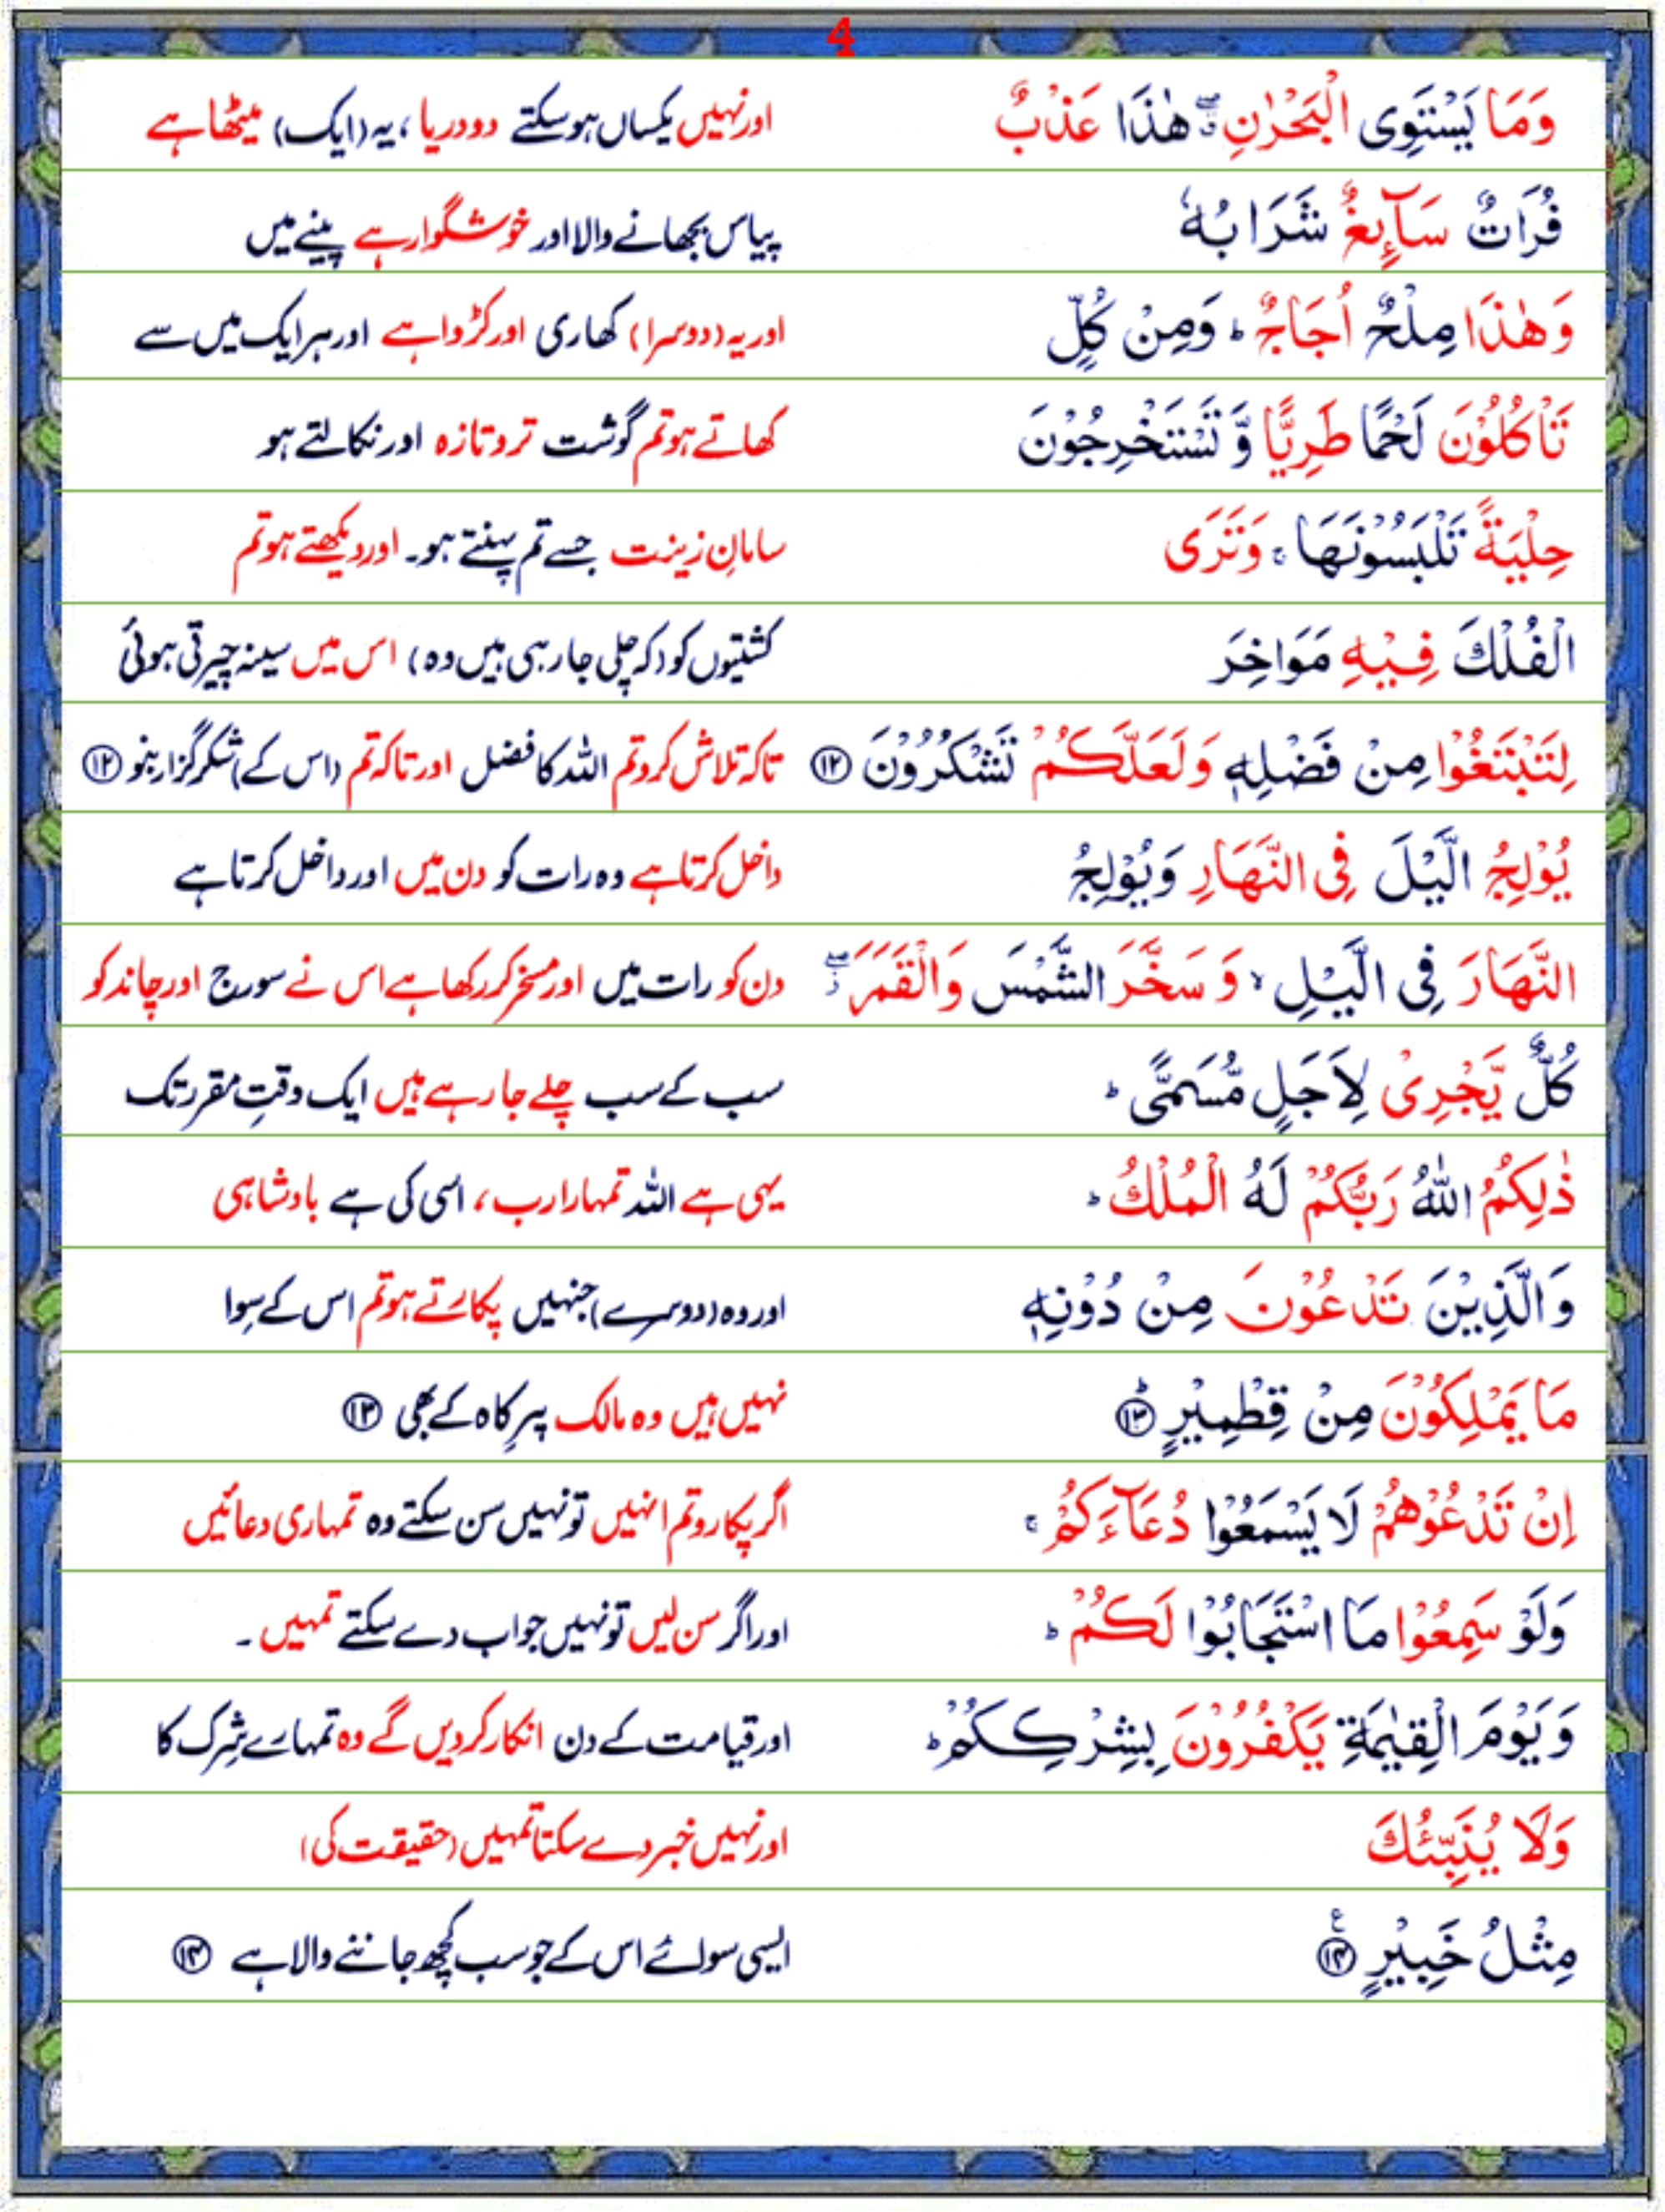 4
وَمَا يَسْتَوِى الْبَحْرٰنِ ۖۗ هٰذَا عَذْبٌ اور نہیں یکساں ہوسکتے دو دریا، یہ (ایک) میٹھا ہے
فُرَاتٌ سَآىِٕغٌ شَرَابُهٗ پیاس بجھانے والا اور خوشگوار ہے پینے میں
وَهٰذَا مِلْحٌ اُجَاجٌ ؕ وَمِنْ كُلٍّ اور یہ (دوسرا) کھاری اور کڑوا ہے اور ہر ایک میں سے
تَاْكُلُوْنَ لَحْمًا طَرِيًّا وَّ تَسْتَخْرِجُوْنَ کھاتے ہو تم گوشت تروتازہ اور نکالتے ہو
حِلْيَةً تَلْبَسُوْنَهَا ۚ وَتَرَى سامانِ زینت جسے تم پہنتے ہو۔ اور دیکھتے ہو تم
الْفُلْكَ فِيْهِ مَوَاخِرَ کشتیوں کو (کہ چلی جارہی ہیں وہ) اس میں سینہ چیرتی ہوئی
لِتَبْتَغُوْا مِنْ فَضْلِهٖ وَلَعَلَّكُمْ تَشْكُرُوْنَ ⑫ تاکہ تلاش کرو تم اللہ کا فضل اور تاکہ تم (اس کے) شکر گزار بنو ⑫
يُوْلِجُ الَّيْلَ فِى النَّهَارِ وَيُوْلِجُ داخل کرتا ہے وہ رات کو دن میں اور داخل کرتا ہے
النَّهَارَ فِى الَّيْلِ ۙ وَ سَخَّرَ الشَّمْسَ وَالْقَمَرَ ۖؗ دن کو رات میں اور مسخر کر رکھا ہے اس نے سورج اور چاند کو
كُلٌّ يَّجْرِىْ لِاَجَلٍ مُّسَمًّى ؕ سب کے سب چلے جارہے ہیں ایک وقتِ مقرر تک
ذٰلِكُمُ اللّٰهُ رَبُّكُمْ لَهُ الْمُلْكُ ؕ یہی ہے اللہ تمہارا رب، اسی کی ہے بادشاہی
وَالَّذِيْنَ تَدْعُوْنَ مِنْ دُوْنِهٖ اور وہ (دوسرے) جنہیں پکارتے ہو تم اس کے سِوا
مَا يَمْلِكُوْنَ مِنْ قِطْمِيْرٍ ؕ ⑬ نہیں ہیں وہ مالک پرِکاہ کے بھی ⑬
اِنْ تَدْعُوْهُمْ لَا يَسْمَعُوْا دُعَآءَكُمْ ۚ اگر پکارو تم انہیں تو نہیں سن سکتے وہ تمہاری دعائیں
وَلَوْ سَمِعُوْا مَا اسْتَجَابُوْا لَكُمْ ؕ اور اگر سن لیں تو نہیں جواب دے سکتے تمہیں۔
وَيَوْمَ الْقِيٰمَةِ يَكْفُرُوْنَ بِشِرْكِكُمْ ؕ اور قیامت کے دن انکار کردیں گے وہ تمہارے شِرک کا
وَلَا يُنَبِّئُكَ اور نہیں خبر دے سکتا تمہیں (حقیقت کی)
مِثْلُ خَبِيْرٍ ۧ ⑭ ایسی سوائے اس کے جو سب کچھ جاننے والا ہے ⑭